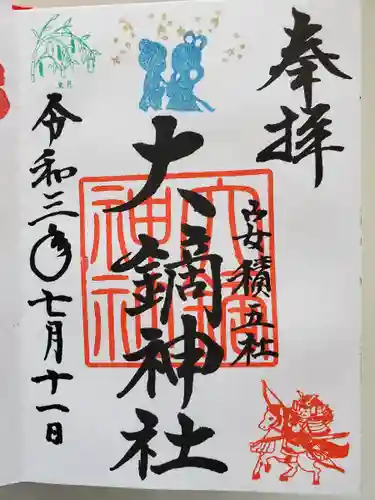 奉拝
安積五社
大鏑神社
大鏑
神社
令和三年七月十一日